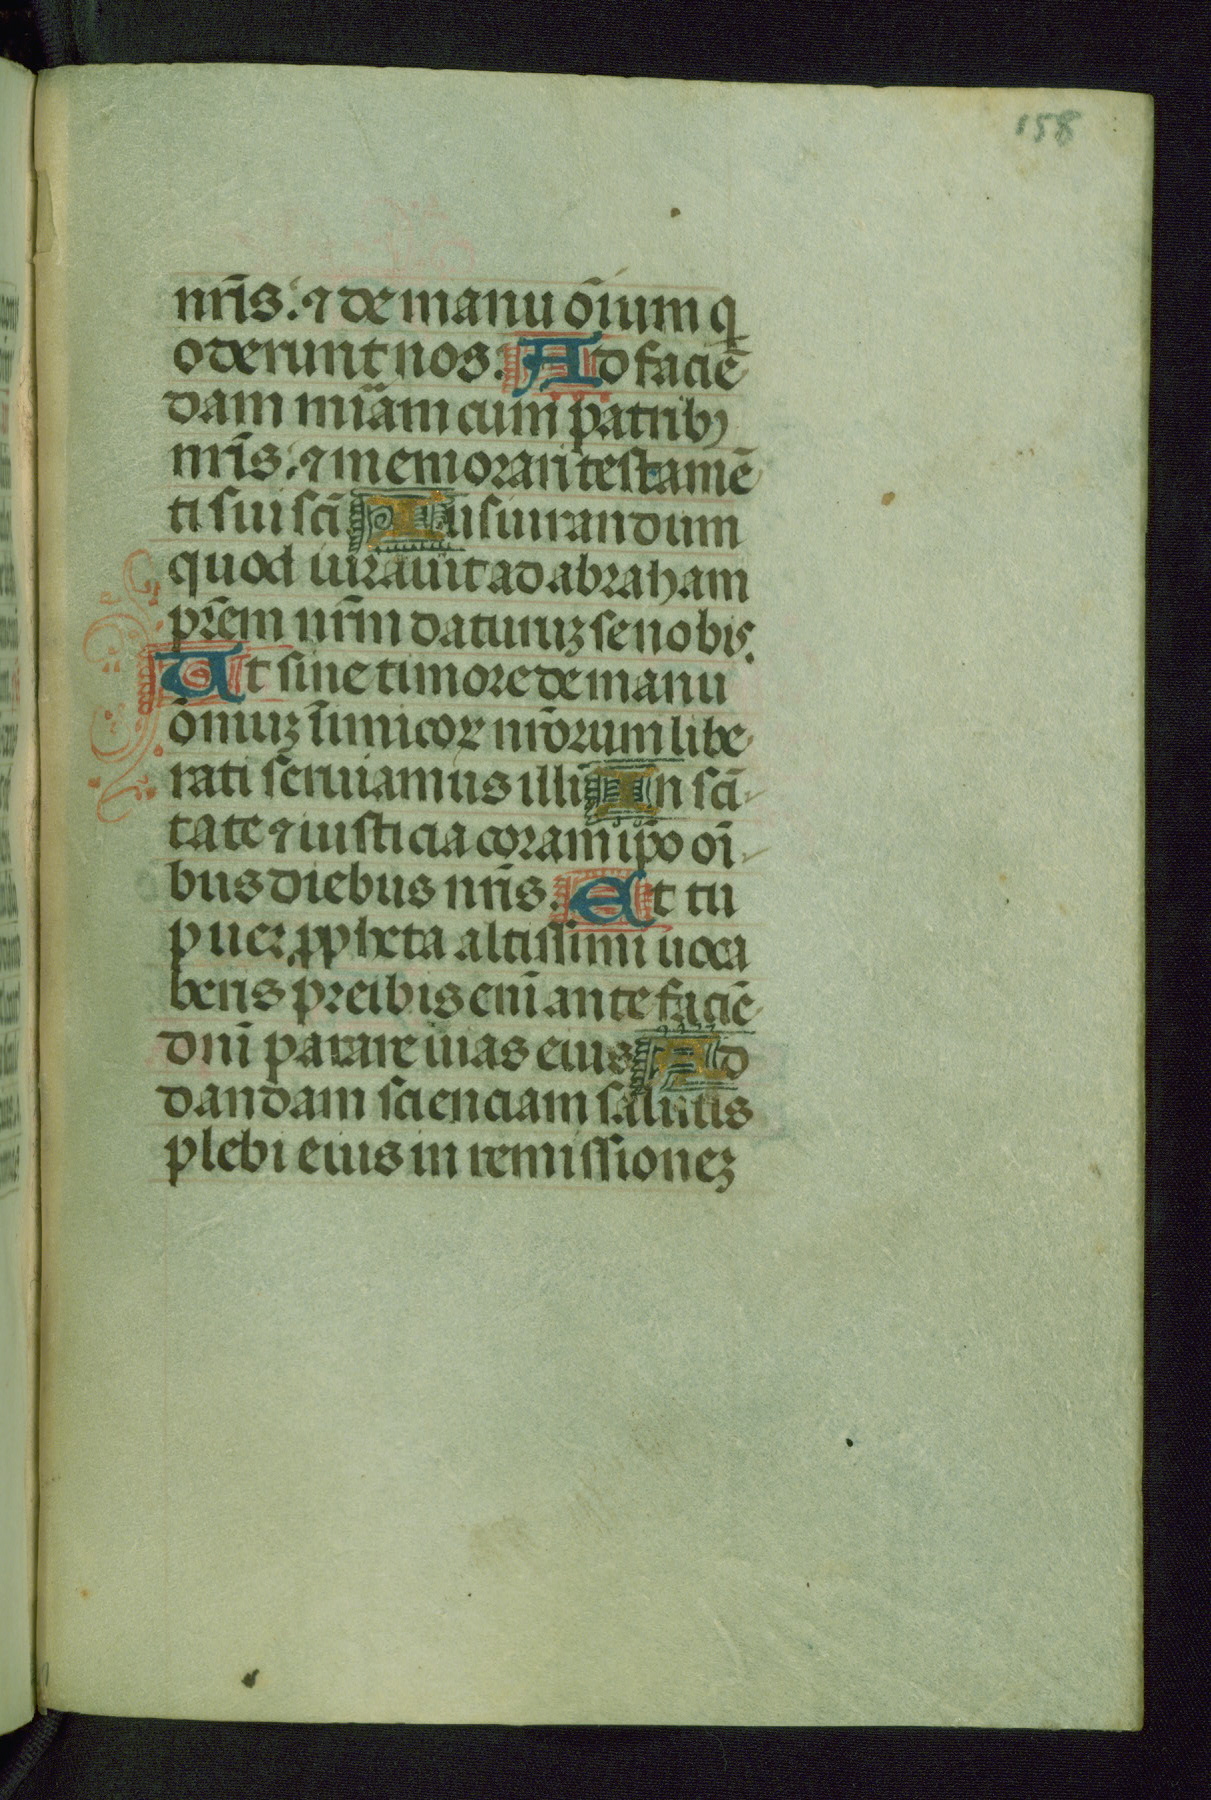 158
nr̄is. ⁊ de manu ōium q
oderunt nos. Ad faciē
dam miām cum patribꝫ
nr̄is. ⁊ memorari testamē
ti sui scī Iusiurandum
quod iurauit ad abraham
pr̄em nr̄m daturuꝫ se nobis.
Ut sine timore de manu
ōniuꝫ īimicoꝝ nr̄orum libe
rati seruiamus illi In scī
tate ⁊ iusticia coram ip̄o oī
bus diebus nr̄is. Et tu
puer ꝓpheta altissimi uoca
beris preibis enī ante faciē
dnī parare uias eius Ad
dandam scienciam salutis
plebi eius in remissioneꝫ